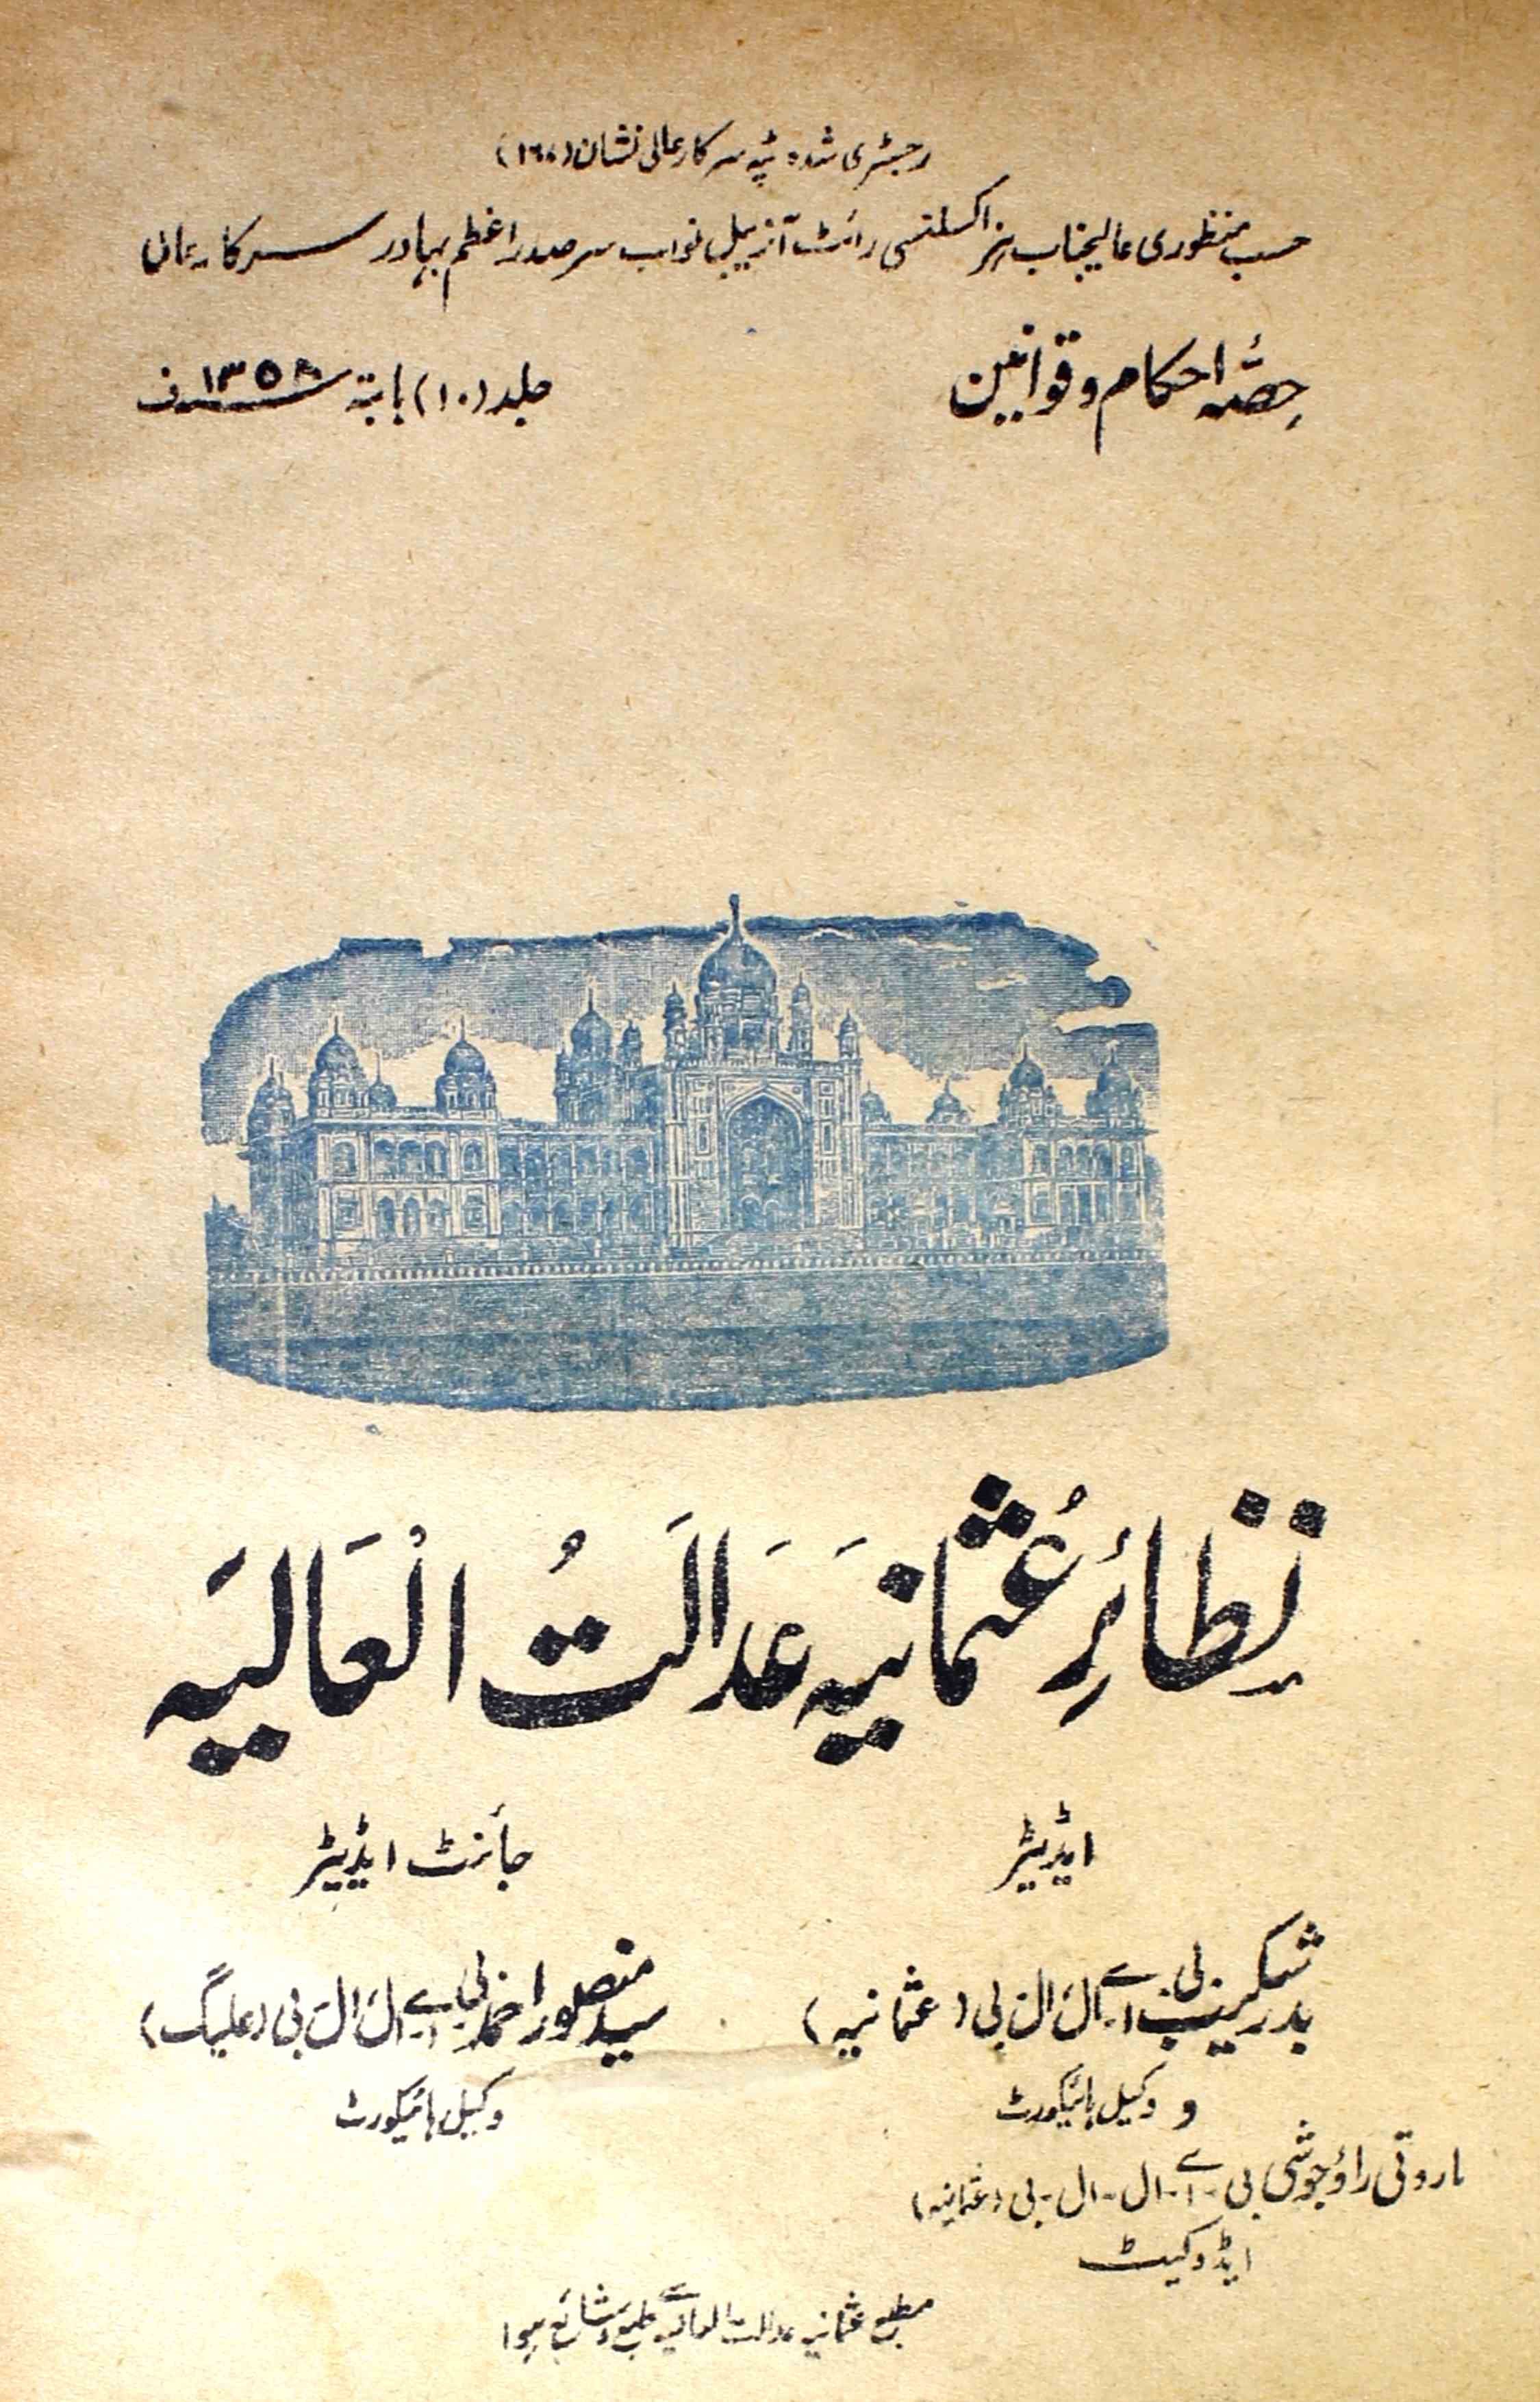 رجسٹری شدہ ٹپہ سرکارعالی نشان (۱۶۰)
حسب منظوری عالیجناب ہز اکسلنسی رائٹ آنریبل نواب سر صدر اعظم بہادر سرکارعالی
حصّہ احکام و قوانین
جلد (۱۰) بابتہ ۱۳۵۸ف
نظائرِ عُثمانیَہ عَدَالَتُ الْعَالیَہ
ایڈیٹر
جائنٹ ایڈیٹر
بدر شکیب بی اے ال ال بی (عثمانیہ)
سید منصور احمد بی اے ال ال بی (علیگ)
وکیل ہائیکورٹ
وکیل ہائیکورٹ
و
ماروتی راؤ جوشی بی-اے-ال-ال-بی (عثمانیہ)
ایڈوکیٹ
مطبع عثمانیہ عدالت العالیہ سے طبع و شائع ہوا